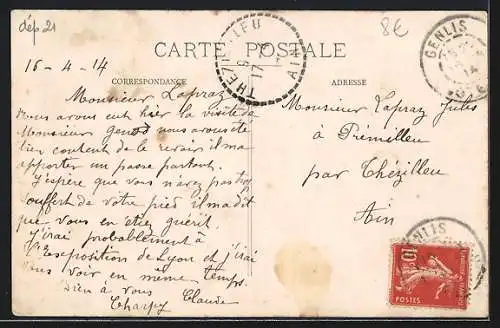 dép 21
8€
CARTE POSTALE
CORRESPONDANCE
ADRESSE
16-4-14
Monsieur Lapraz
Nous avons eut hier la visite de
Monsieur nous avons ete
bien content de le revoir il m'a
apporter un passe partout.
J'espère que vous n'avez pas trop
souffert de votre pied il m'a dit
que vous en etiez guérit.
J'irai probablement à
l'exposition de Lyon et j'irai
vous voir en même temps.
Bien à vous
Claude
Monsieur Lapraz Jules
à Prémilleu
par Thézilleu
Ain
GENLIS
14
THEZILLIEU
17
AIN
GENLIS
10
POSTES